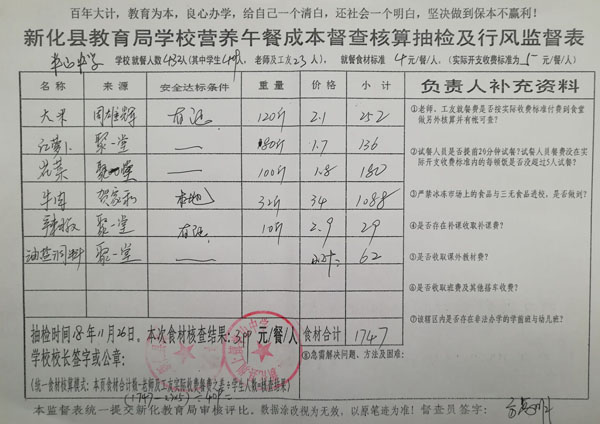 百年大计，教育为本，良心办学，给自己一个清白，还社会一个明白，坚决做到保本不赢利！
新化县教育局学校营养午餐成本督查核算抽检及行风监督表
学校就餐人数432人(其中学生409人，老师及工友23人)，就餐食材标准4元/餐/人，(实际开支收费标准为5元/餐/人)
名称 来源 安全达标条件 重量 价格 小计 负责人补充资料
大米 周雄辉 120斤 2.1 252
红萝卜 聚一堂 — 80斤 1.7 136
花菜 聚一堂 — 100斤 1.8 180
牛肉 贺家和 本地 32斤 34 1088
辣椒 聚一堂 10斤 2.9 29
油盐调料 聚一堂 — 小计: 62
①老师、工友就餐费是否按实际收费标准付费到食堂
做另外核算并有帐可查？
②试餐人员是否提前20分钟试餐？试餐人员餐费没在实
际开支收费标准内的每顿饭是否没超过5人试餐？
③严禁冰冻市场上的食品与三无食品进校，是否做到？
④是否存在补课收取补课费？
⑤是否收取课外教材费？
⑥是否收取班费及其他搭车收费？
⑦辖区内是否存在非法办学的学前班与幼儿班？
抽检时间18年11月26日。本次食材核查结果:3.99元/餐/人 食材合计 1747
学校校长签字或公章：
⑧急需解决问题、方法及困难：
(统一食材核算模式：本页食材合计数-老师及工友实际收费餐费之和÷学生人数=核查结果)
本监督表统一提交新化教育局审核评比。数据涂改视为无效，以原笔迹为准！督查员签字：